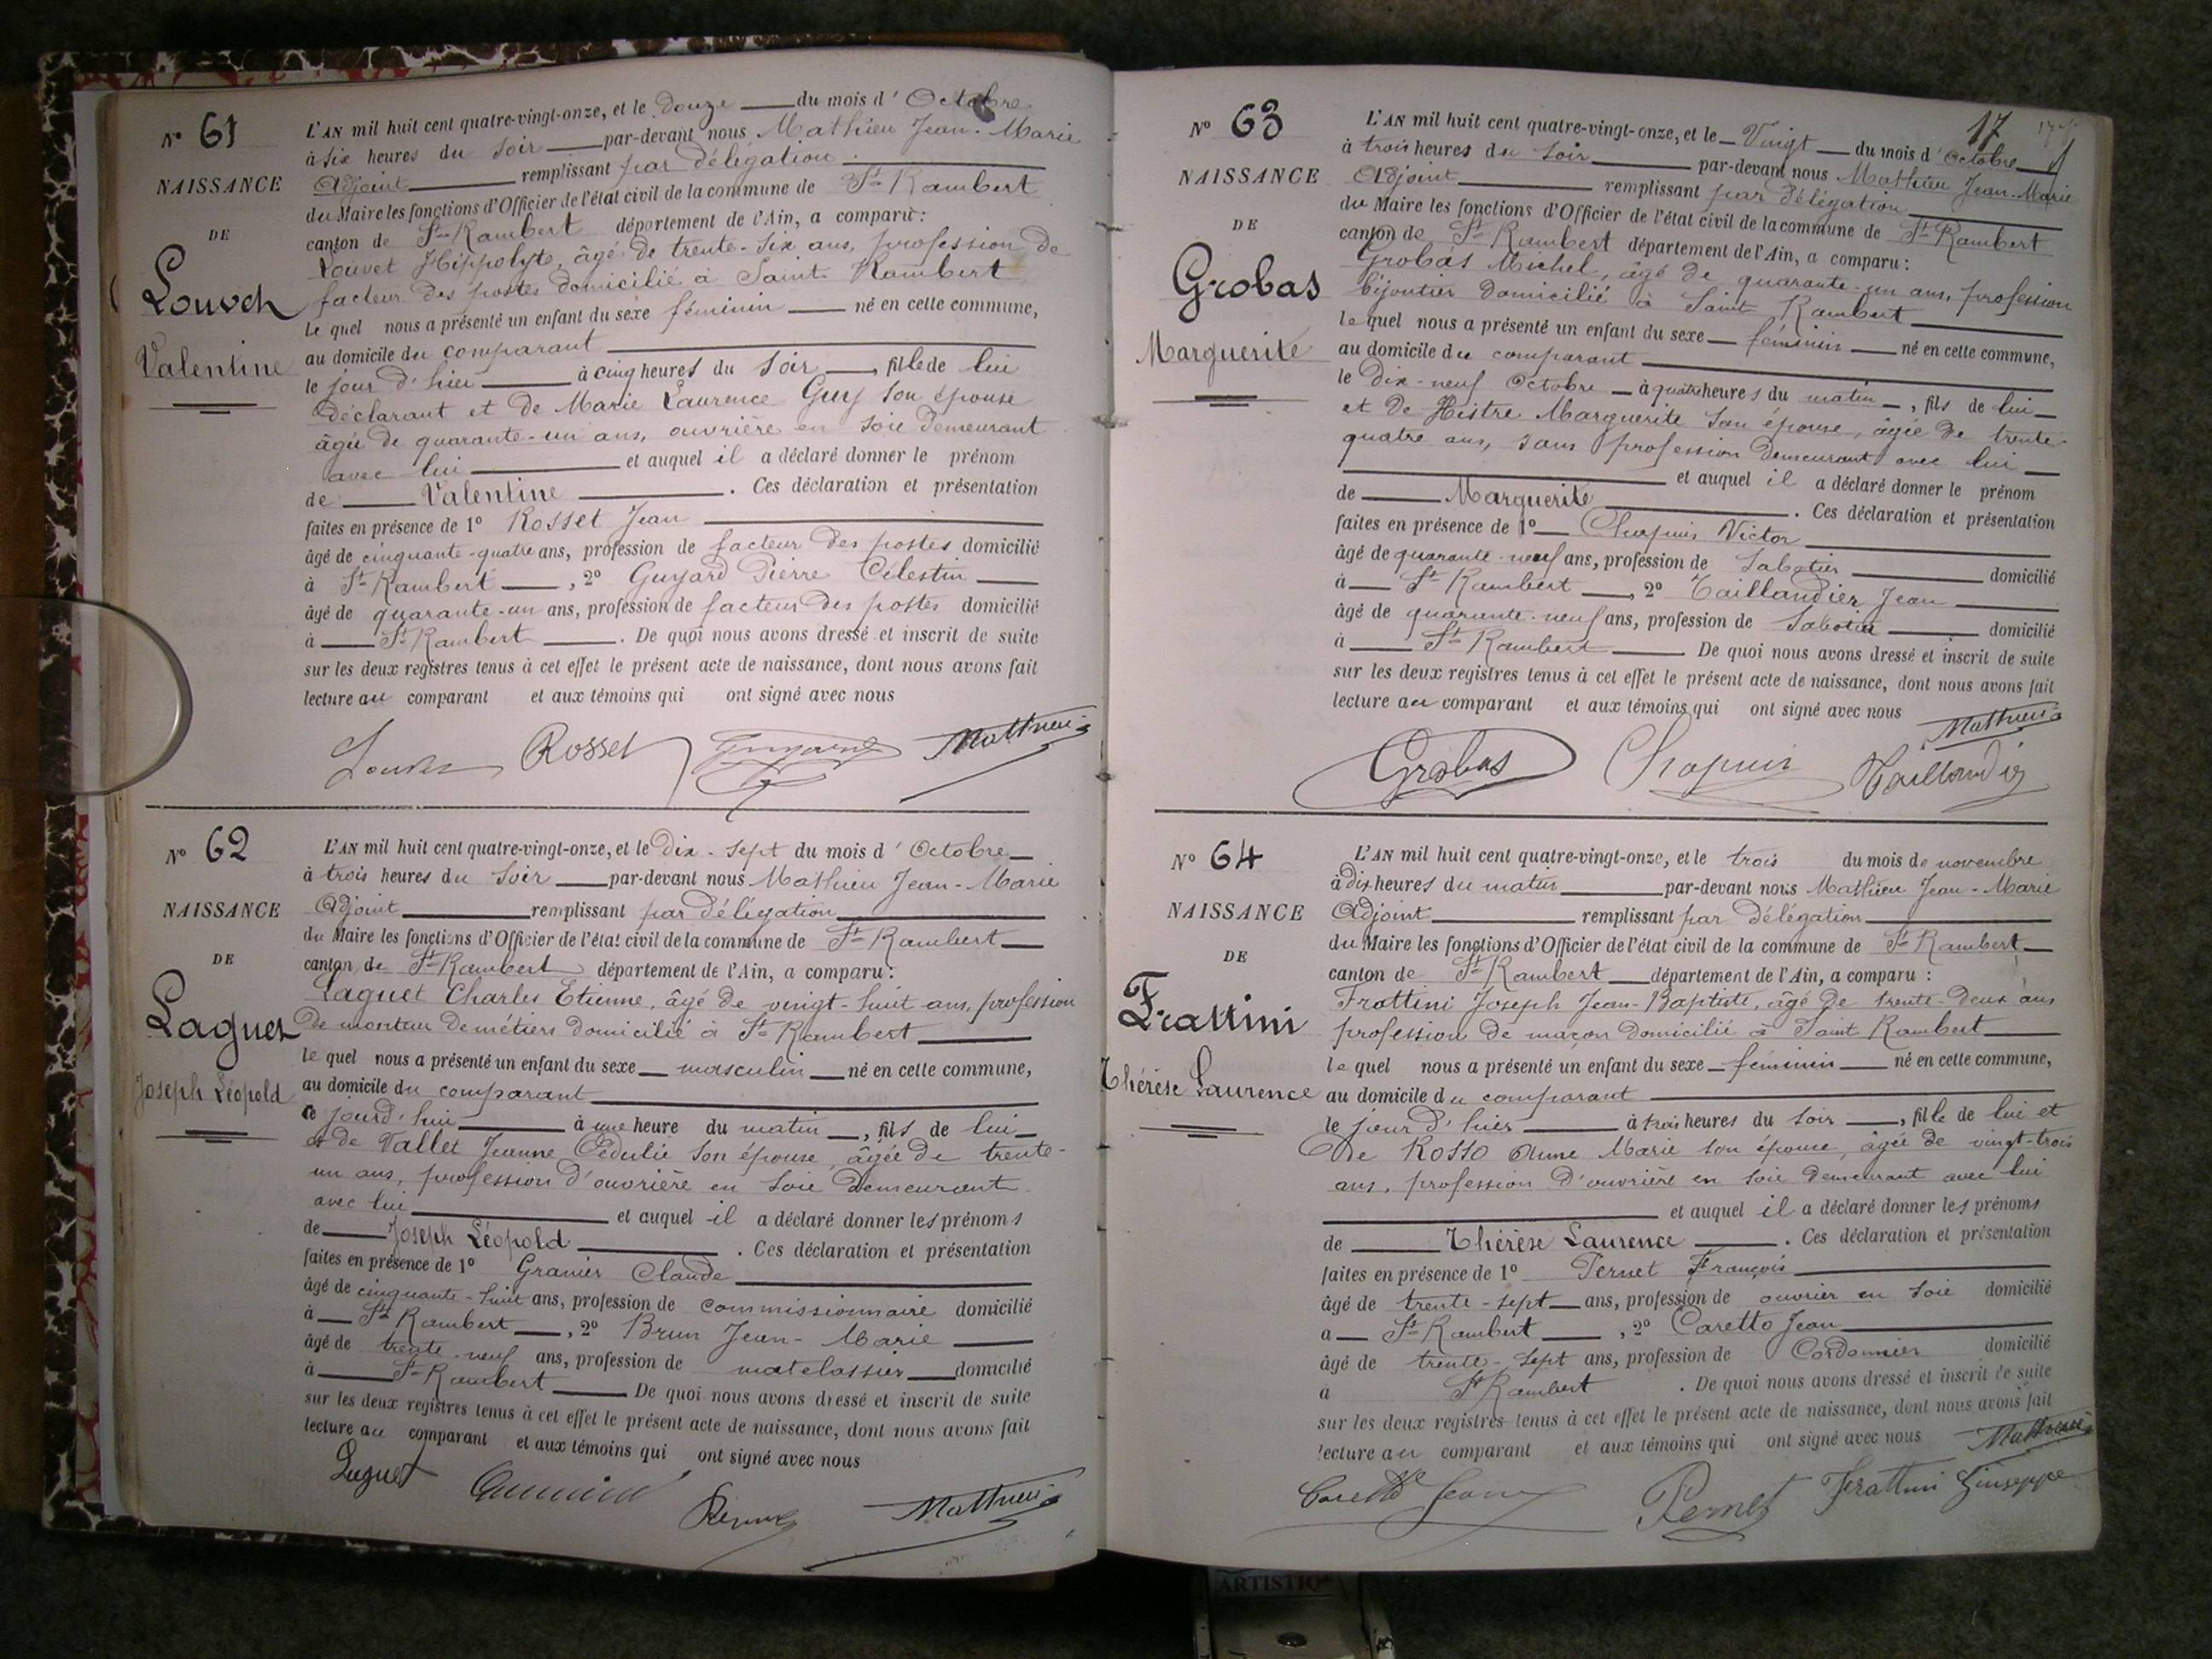 N° 61
NAISSANCE
DE
Louvet
Valentine
L'AN mil huit cent quatre-vingt-onze, et le douze du mois d'Octobre
à six heures du soir par-devant nous Mathieu Jean-Marie
Adjoint remplissant par délégation
du Maire les fonctions d'Officier de l'état civil de la commune de St Rambert
canton de St Rambert département de l'Ain, a comparu :
Louvet Hippolyte, âgé de trente-six ans, profession de
facteur des postes domicilié à Saint Rambert
le quel nous a présenté un enfant du sexe féminin né en cette commune,
au domicile du comparant
le jour d'hier à cinq heures du soir, fille de lui
déclarant et de Marie Laurence Guy son épouse
âgée de quarante-un ans, ouvrière en soie demeurant
avec lui et auquel il a déclaré donner le prénom
de Valentine. Ces déclaration et présentation
faites en présence de 1° Rosset Jean
âgé de cinquante-quatre ans, profession de facteur des postes domicilié
à St Rambert, 2° Guyard Pierre Célestin
âgé de quarante-un ans, profession de facteur des postes domicilié
à St Rambert. De quoi nous avons dressé et inscrit de suite
sur les deux registres tenus à cet effet le présent acte de naissance, dont nous avons fait
lecture au comparant et aux témoins qui ont signé avec nous
Louvet Rosset Guyard Mathieu
N° 62
NAISSANCE
DE
Laguet
Joseph Léopold
L'AN mil huit cent quatre-vingt-onze, et le dix-sept du mois d'Octobre
à trois heures du soir par-devant nous Mathieu Jean-Marie
Adjoint remplissant par délégation
du Maire les fonctions d'Officier de l'état civil de la commune de St Rambert
canton de St Rambert département de l'Ain, a comparu :
Laguet Charles Etienne, âgé de vingt-huit ans, profession
de monteur de métiers domicilié à St Rambert
le quel nous a présenté un enfant du sexe masculin né en cette commune,
au domicile du comparant
ce jourd'hui à une heure du matin, fils de lui
et de Vallet Jeanne Cédulie son épouse, âgée de trente-
un ans, profession d'ouvrière en soie demeurant
avec lui et auquel il a déclaré donner les prénoms
de Joseph Léopold. Ces déclaration et présentation
faites en présence de 1° Granier Claude
âgé de cinquante-huit ans, profession de commissionnaire domicilié
à St Rambert, 2° Brun Jean-Marie
âgé de trente-neuf ans, profession de matelassier domicilié
à St Rambert De quoi nous avons dressé et inscrit de suite
sur les deux registres tenus à cet effet le présent acte de naissance, dont nous avons fait
lecture au comparant et aux témoins qui ont signé avec nous
Laguet Mathieu
17
N° 63
NAISSANCE
DE
Grobas
Marguerite
L'AN mil huit cent quatre-vingt-onze, et le Vingt du mois d'Octobre
à trois heures du soir par-devant nous Mathieu Jean-Marie
Adjoint remplissant par délégation
du Maire les fonctions d'Officier de l'état civil de la commune de St Rambert
canton de St Rambert département de l'Ain, a comparu :
Grobas Michel, âgé de quarante-un ans, profession
bijoutier domicilié à Saint Rambert
le quel nous a présenté un enfant du sexe féminin né en cette commune,
au domicile du comparant
le dix-neuf Octobre à quatre heures du matin, fils de lui
et de Histre Marguerite son épouse, âgée de trente-
quatre ans, sans profession demeurant avec lui
et auquel il a déclaré donner le prénom
de Marguerite. Ces déclaration et présentation
faites en présence de 1° Chapuis Victor
âgé de quarante-neuf ans, profession de Sabotier domicilié
à St Rambert, 2° Taillandier Jean
âgé de quarante-neuf ans, profession de Sabotier domicilié
à St Rambert De quoi nous avons dressé et inscrit de suite
sur les deux registres tenus à cet effet le présent acte de naissance, dont nous avons fait
lecture au comparant et aux témoins qui ont signé avec nous
Mathieu
Grobas Chapuis Taillandier
N° 64
NAISSANCE
DE
Frattini
Thérèse Laurence
L'AN mil huit cent quatre-vingt-onze, et le trois du mois de novembre
à dix heures du matin par-devant nous Mathieu Jean-Marie
Adjoint remplissant par délégation
du Maire les fonctions d'Officier de l'état civil de la commune de St Rambert
canton de St Rambert département de l'Ain, a comparu :
Frattini Joseph Jean-Baptiste, âgé de trente-deux ans
profession de maçon domicilié à Saint Rambert
le quel nous a présenté un enfant du sexe féminin né en cette commune,
au domicile du comparant
le jour d'hier à trois heures du soir, fille de lui et
de Rosso Anne Marie son épouse, âgée de vingt-trois
ans, profession d'ouvrière en soie demeurant avec lui
et auquel il a déclaré donner les prénoms
de Thérèse Laurence. Ces déclaration et présentation
faites en présence de 1° Pernet François
âgé de trente-sept ans, profession de ouvrier en soie domicilié
à St Rambert, 2° Caretto Jean
âgé de trente-sept ans, profession de Cordonnier domicilié
à St Rambert. De quoi nous avons dressé et inscrit de suite
sur les deux registres tenus à cet effet le présent acte de naissance, dont nous avons fait
lecture au comparant et aux témoins qui ont signé avec nous
Mathieu
Caretto Jean Pernet Frattini Giuseppe
ARTISTIQ